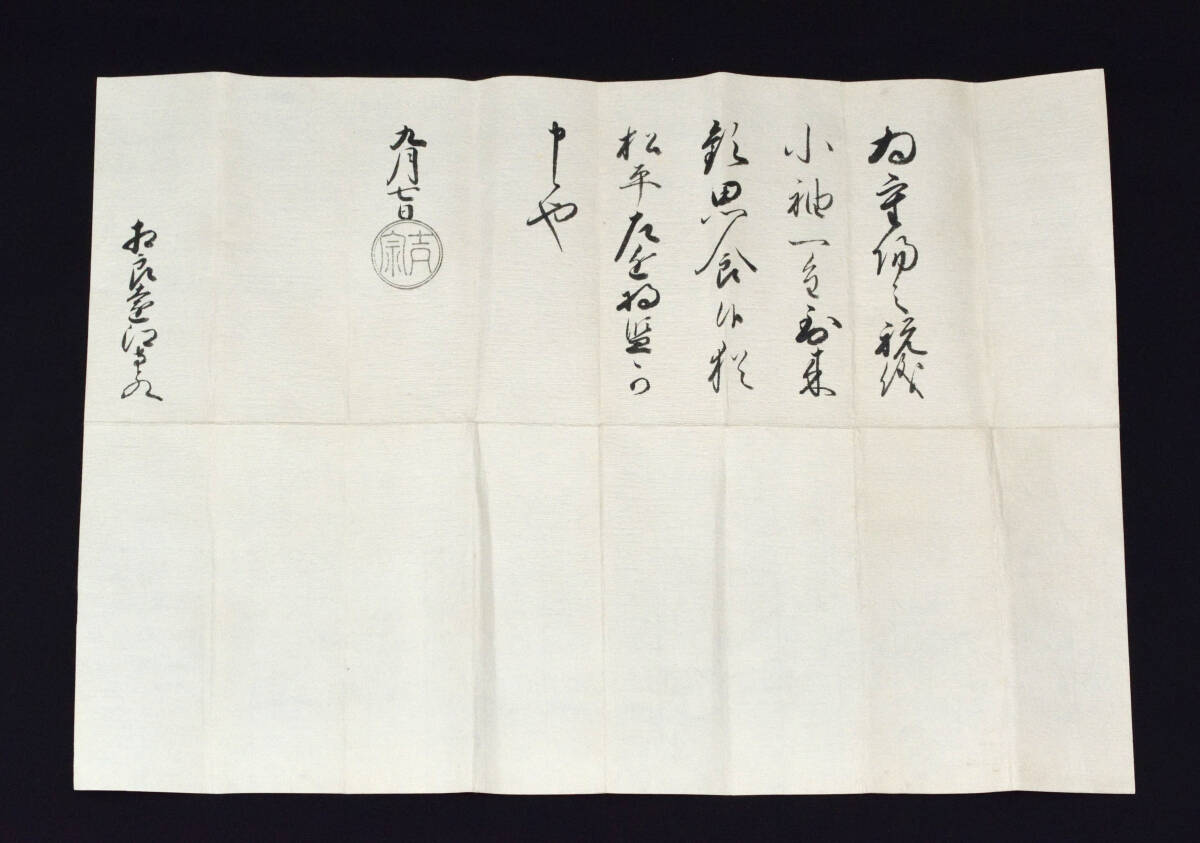 為重陽之祝儀
小袖一重到来
歓思食候猶
松平左近将監可
申候也
九月七日
吉宗
相良遠江守とのへ